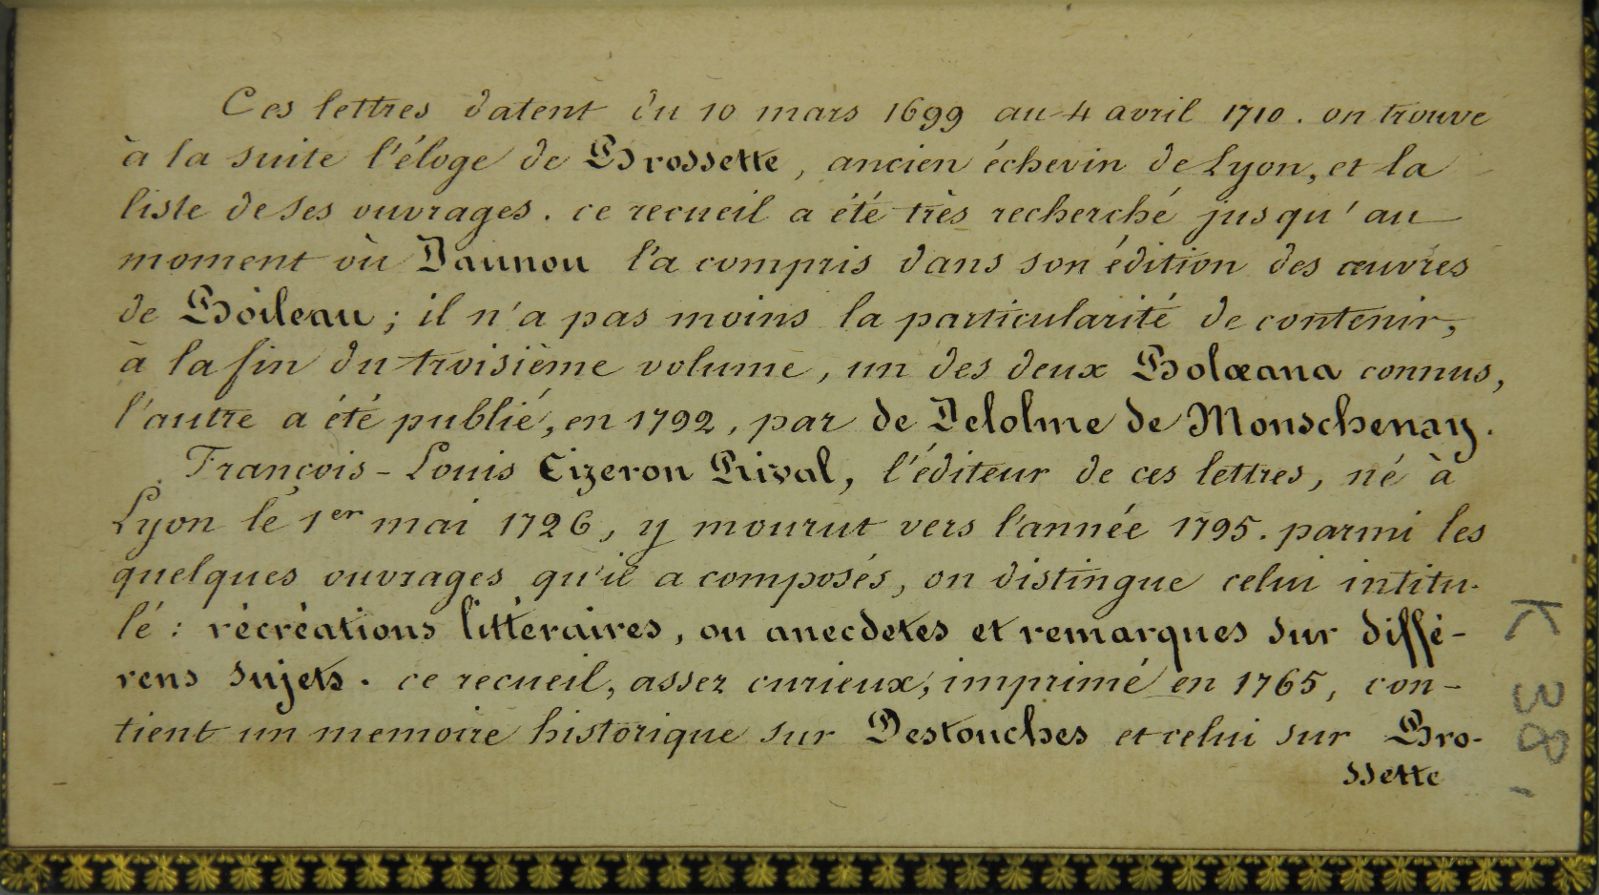 Ces lettres datent du 10 mars 1699 au 4 avril 1710. on trouve
à la suite l'éloge de Brossette, ancien échevin de Lyon, et la
liste de ses ouvrages. ce recueil a été très recherché jusqu'au
moment où Daunou l'a compris dans son édition des œuvres
de Boileau; il n'a pas moins la particularité de contenir,
à la fin du troisième volume, un des deux Bolæana connus,
l'autre a été publié, en 1792, par de Delolme de Monschenay.
François-Louis Cizeron Rival, l'éditeur de ces lettres, né à
Lyon le 1er mai 1726, y mourut vers l'année 1795. parmi les
quelques ouvrages qu'il a composés, on distingue celui intitu-
lé: récréations littéraires, ou anecdetes et remarques sur diffé-
rens sujets. ce recueil, assez curieux, imprimé en 1765, con-
tient un memoire historique sur Destouches et celui sur Bro-
ssette
K 38